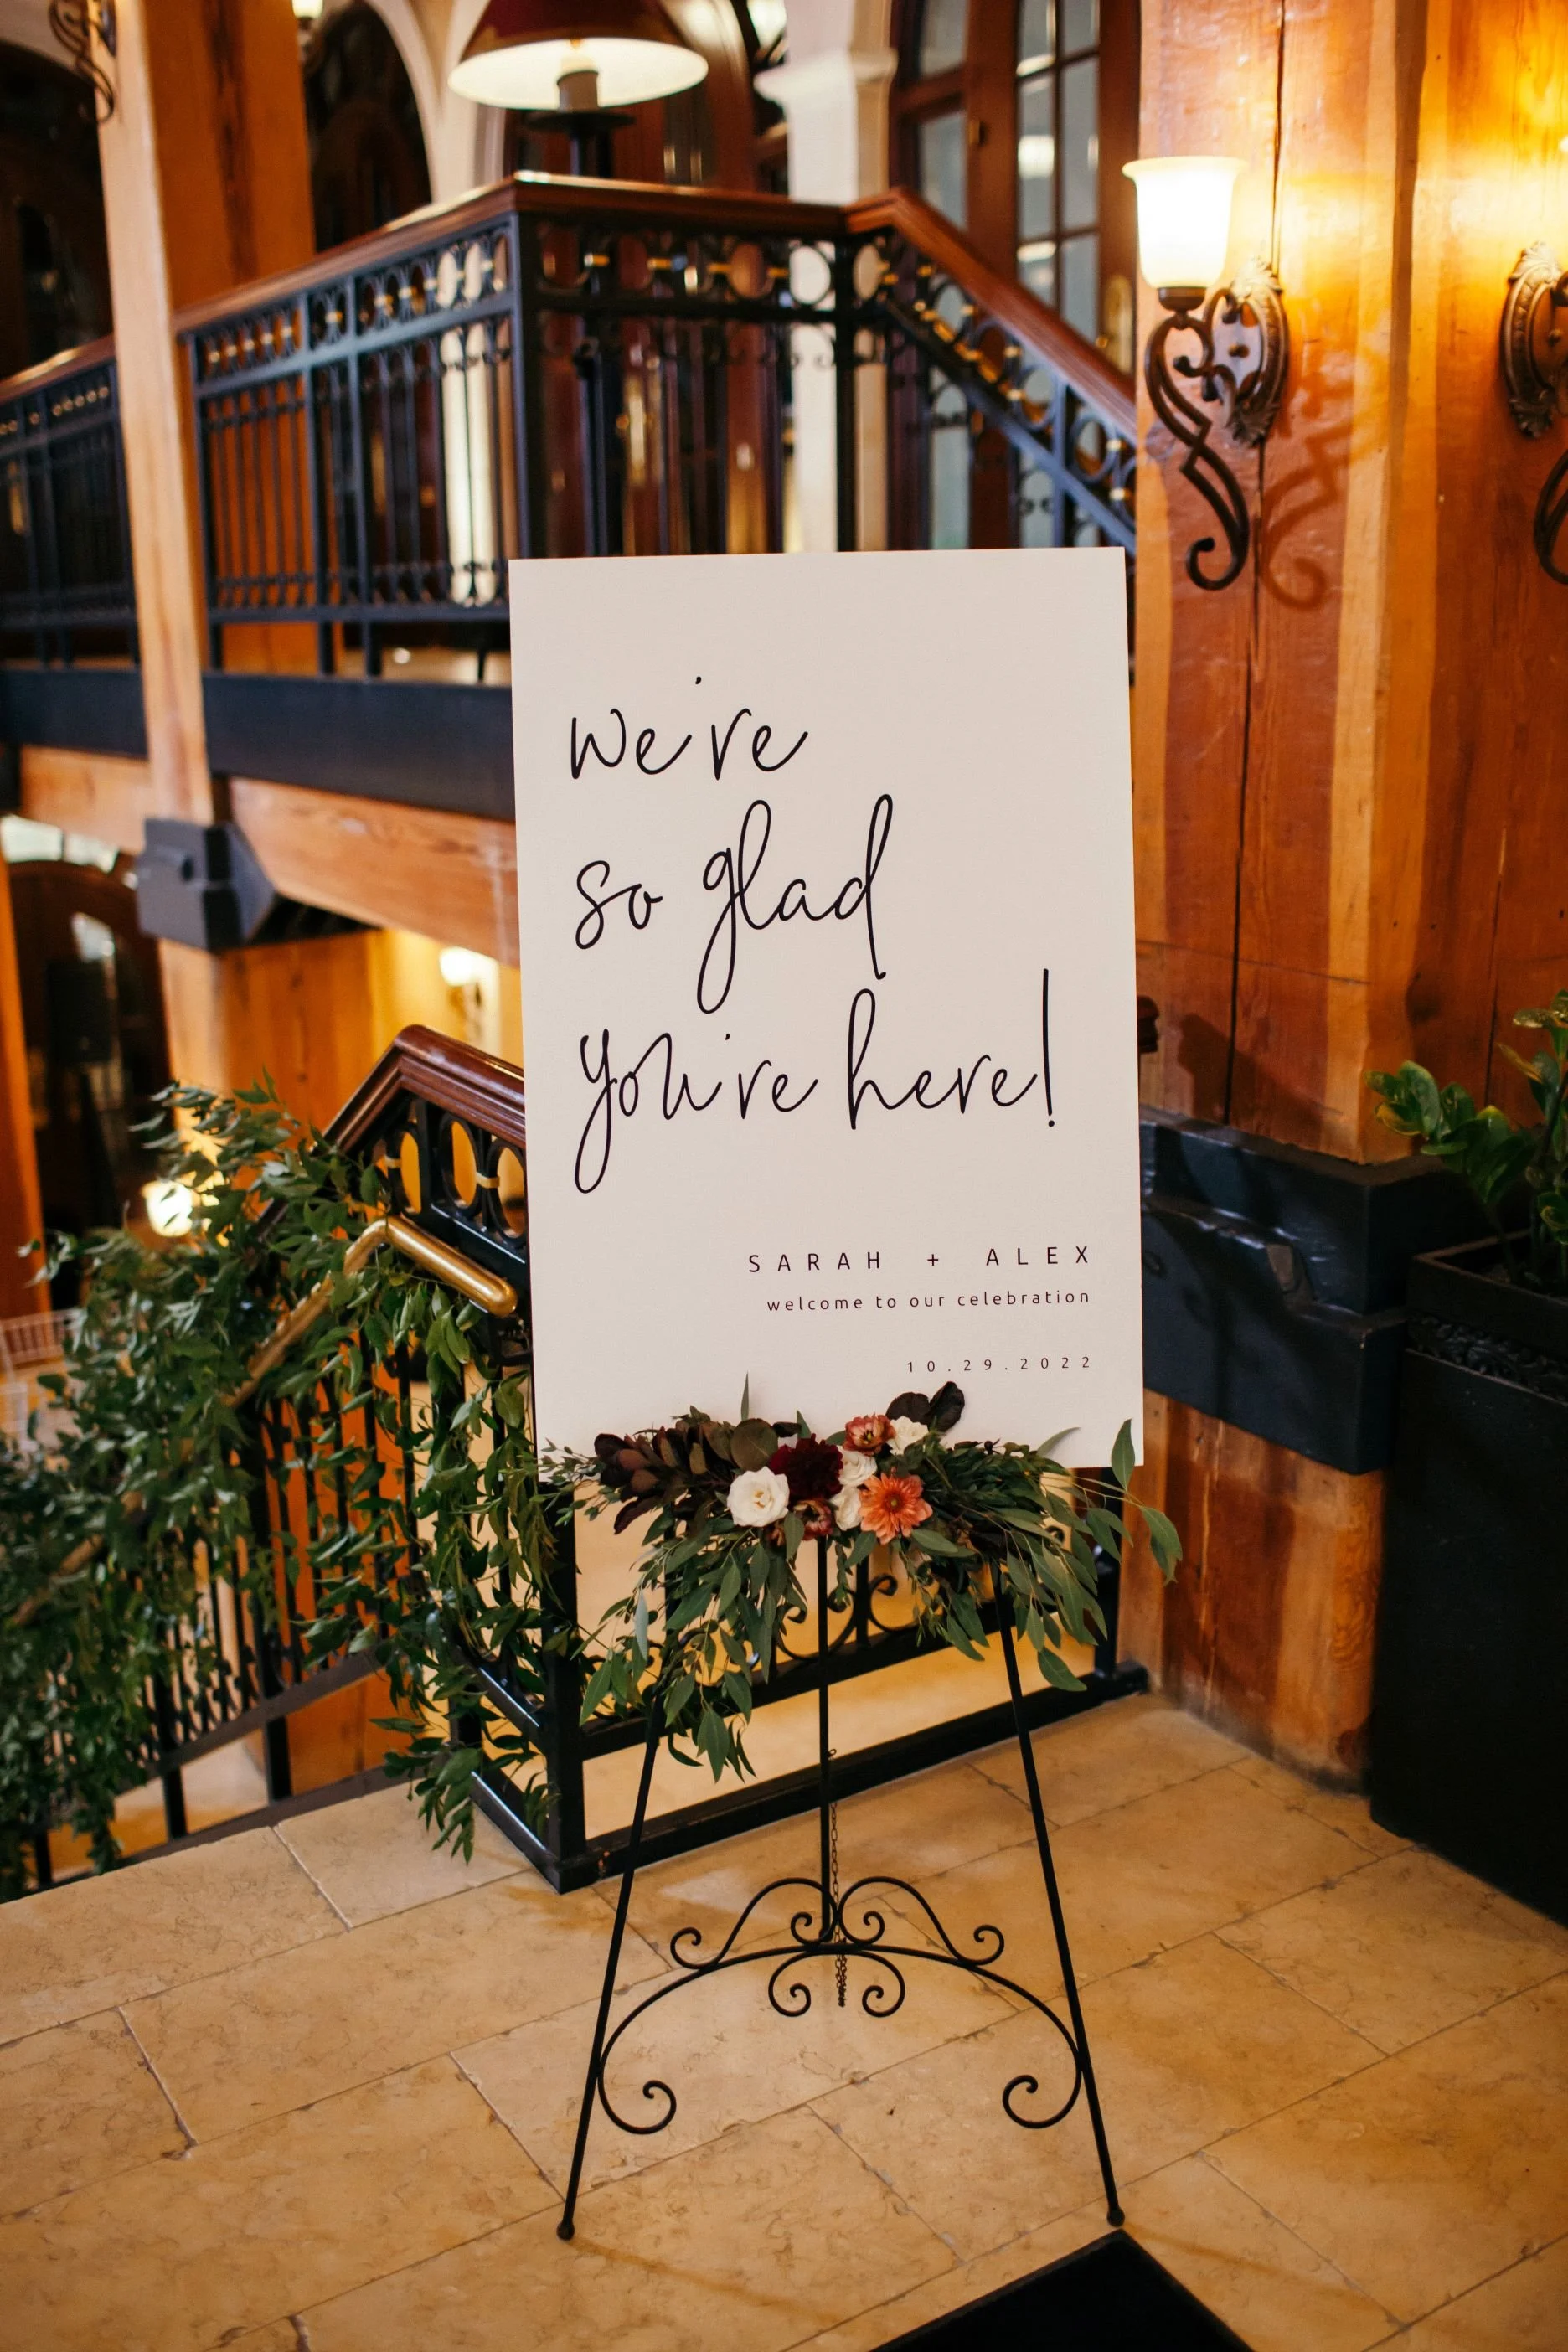 we're
so glad
you're here!
SARAH + ALEX
welcome to our celebration
10.29.2022